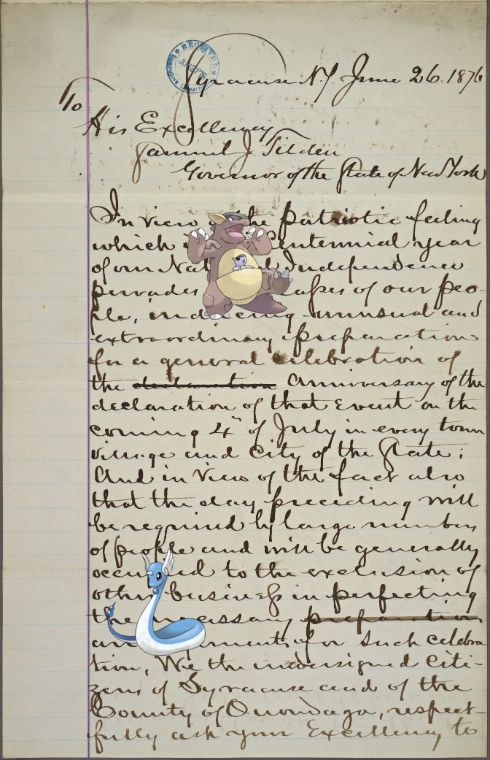 Syracuse NY June 26. 1876
To
His Excellency
Samuel J Tilden
Governor of the State of New York
In view the patriotic feeling
which Centennial year
of our Nat Independence
pervades of our peo-
ple, inducing unusual and
extraordinary preparation
for a general celebration of
the declaration Anniversary of the
declaration of that Event on the
coming 4th of July in every town
village and city of the State;
And in view of the fact also
that the day preceding will
be required by large numbers
of people and will be generally
occupied to the exclusion of
other business in perfecting
the necessary preparation
for such celebra
tion, We the undersigned citi-
zens of Syracuse and of the
County of Onondaga, respect-
fully ask your Excellency to